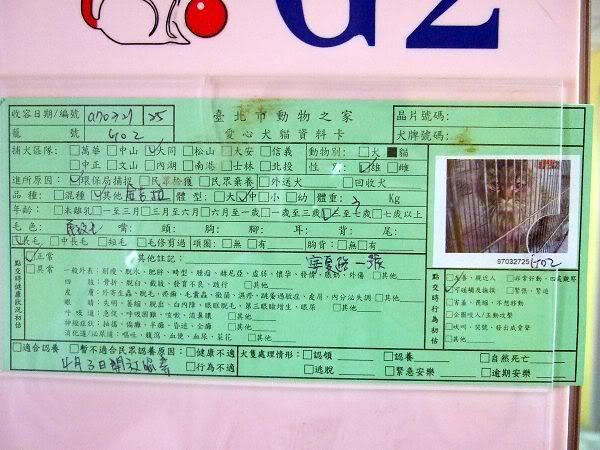 G2
收容日期/編號 970327 25 臺北市動物之家 晶片號碼:
籠號 G02 愛心犬貓資料卡 犬牌號碼:
捕犬區隊: □萬華 □中山 ☑大同 □松山 □大安 □信義 動物別: □犬 ■貓
□中正 □文山 □內湖 □南港 □士林 □北投 性別: ☑雄 □雌
進所原因: ☑環保局捕捉 □民眾捡獲 □民眾棄養 □外送犬 □回收犬
品種: □混種 ☑其他 體型: □大 ☑中 □小 □幼 體重: 3 Kg
年齡: □未離乳 □一至三月 □三月至六月 □六月至一歲 □一歲至三歲 ☑三至七歲 □七歲以上
毛色: 嘴: 頭: 胸: 腳: 耳: 背: 尾:
☑長毛 □中長毛 □短毛 □毛修剪過 項圈: □無 □有 胸背: □無 □有
97032725 G02
點交時健康狀況初估
☑正常 其他註記:
□異常
一般外觀: 削瘦、脫水、肥胖、畸型、腫瘤、赫尼亞、虛弱、懷孕、發情、脹奶、外傷 □其他
四肢: 骨折、脫臼、截肢、發育不良、跛行 □其他
皮膚: 外寄生蟲、脫毛、疥癬、毛囊蟲、黴菌、濕疹、跳蚤過敏症、皮屑、內分泌失調 □其他
眼睛: 失明、萎縮、脫出、白內障、眼瞼脫毛、第三眼瞼增生、眼屎 □其他
呼吸道: 急促、呼吸困難、咳嗽、流鼻膿 □其他
神經症狀: 抽搐、偏癱、半癱、昏迷、全癱 □其他
消化道/泌尿道: 嘔吐、腹瀉、血便、血尿、菜花 □其他
點交時行為初估
□友善、親近人 □非常好動、四處觀察
□緊張、緊迫
□害羞、畏縮、不想移動
□企圖咬人/主動攻擊
□吠叫、哭號、發出威脅聲
□其他
□適合認養 □暫不適合民眾認養原因: □健康不適 犬隻處理情形: □認領 □認養 □自然死亡
4月3日開放認養 □行為不適 □逃脫 □緊急安樂 □逾期安樂